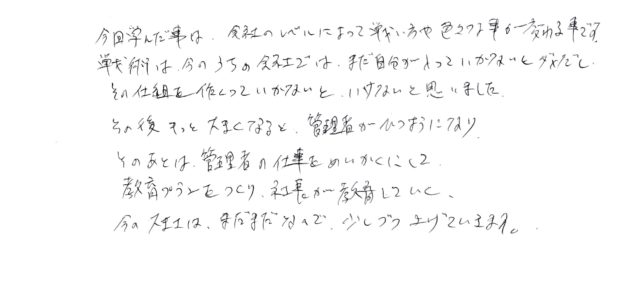 今回学んだ事は、会社のレベルによって戦い方や色々な事が変わる事です。
戦術は、今のうちの会社では、まだ自分がやっていかないとダメだし、
その仕組を作くっていかないと、いけないと思いました。
その後もっと大きくなると、管理者がひつようになり
そのあとは、管理者の仕事をめいかくにして
教育プランをつくり、社長が教育していく、
今の会社は、まだまだなので、少しづつ上げていきます。